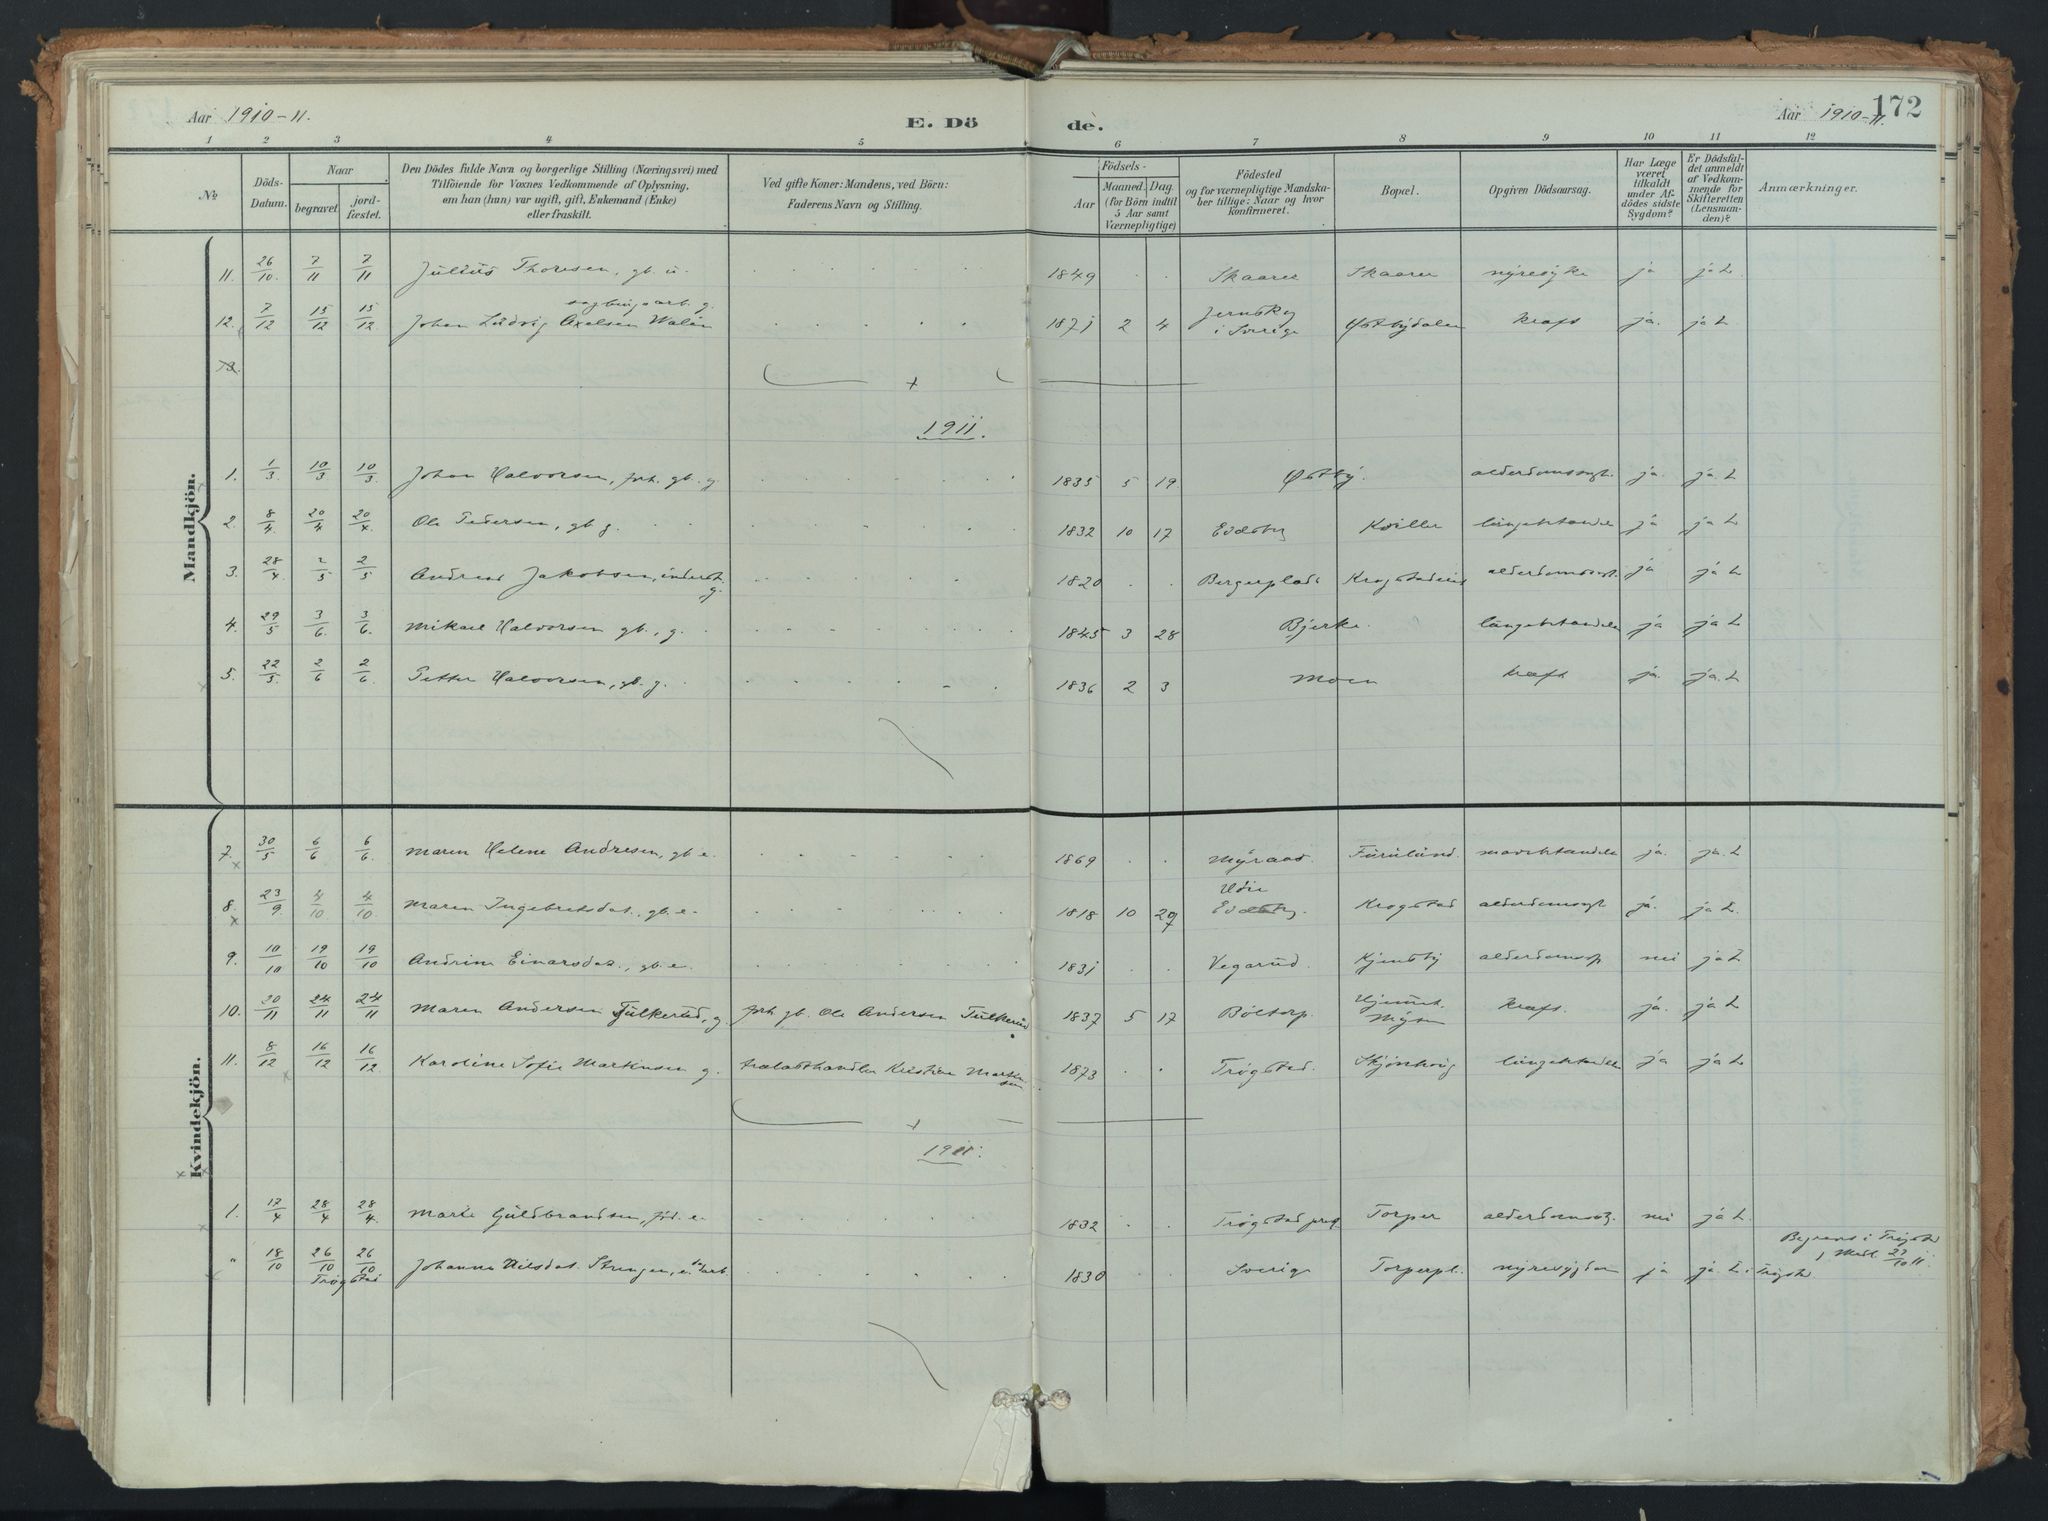 Aar 1910-11.
E. Dö
de.
Aar 1910-11.
172
1 2 3 4 5 6 7 8 9 10 11 12
No
Döds-Datum.
Naar
begravet.
jord-fæstet.
Den Dödes fulde Navn og borgerlige Stilling (Næringsvei) med
Tilföiende for Voxnes Vedkommende af Oplysning,
om han (hun) var ugift, gift, Enkemand (Enke)
eller fraskilt.
Ved gifte Koner: Mandens, ved Börn:
Faderens Navn og Stilling.
Födsels-
Aar
Maaned. Dag.
(for Börn indtil
5 Aar samt
Værnepligtige)
Födested
og for værnepligtige Mandska-
ber tillige: Naar og hvor
konfirmeret.
Bopæl.
Opgiven Dödsaarsag.
Har Læge
været
tilkaldt
under Af-
dödes sidste
Sygdom?
Er Dödsfal-
det anmeldt
af Vedkom-
mende for
Skifteretten
(Lensman-
den)?
Anmærkninger.
Mandkjön.
11. 26/10 7/11 7/11 Julius Thoresen, gb. u. 1849 Skaarer Skaarer nyresyke ja ja L.
12. 7/12 15/12 15/12 Johan Ludvig Axelsen Walén sagbrugsarb. g. 1871 2 4 Jernskog i Sverige Østbydalen kræft ja. ja L
13.
1911.
1. 1/3 10/3 10/3 Johan Halvorsen, forh. gb. g. 1835 5 19. Østby. alderdomssvgh. ja. ja. L
2. 8/4 20/4 20/4 Ole Pedersen, gb g. 1832 10 17 Eidsberg Kviller lungebetændelse ja ja L
3. 28/4 2/5 2/5 Andreas Jakobsen, inderst, g. 1820 Bergerplads Krogstadeie alderdomssvgh. ja ja L
4. 29/5 3/6 3/6. Mikael Halvorsen gb., g. 1845 3 28 Bjerke. lungebetændelse ja ja L
5. 22/5 2/6 2/6. Petter Halvorsen, gb. g. 1836 2 3 Moen kræft ja. ja. L
Kvindekjön.
7. 30/5 6/6 6/6. Maren Helene Andresen, gb e. 1869 Myraas. Furulund. ja. ja. L
8. 23/9 4/10 4/10. Maren Ingebretsdat., gb. e. 1818 10 29 Eidsberg. Krogstad alderdomssvgh ja. ja L.
9. 10/10 19/10 19/10 Andrine Einarsdat., gb. e. 1831 Vegarud. Kjensby alderdomss. nei ja L
10. 20/11 24/11 24/11 Maren Andersen Fulkerud, g. forh gb. Ole Andersen Fulkerud 1837 5 17 Böltorp. Hjemmet. Mysen kræft. ja. ja L
11. 8/12 16/12 16/12 Karoline Sofie Martinsen g. trælasthandler Kristian Martinsen 1873 Trøgstad. lungebetændelse ja ja L
1911.
1. 17/4 28/4 28/4. Marie Guldbrandsen, e. 1832 Trøgstad præst. Torper alderdomss. nei ja L.
" 18/10 26/10 26/10 Trøgstad Johanne Nilsdat. e. 1830 Sverige Torperpl. ja ja. L i Trøgst. Begravet i Trøgstad